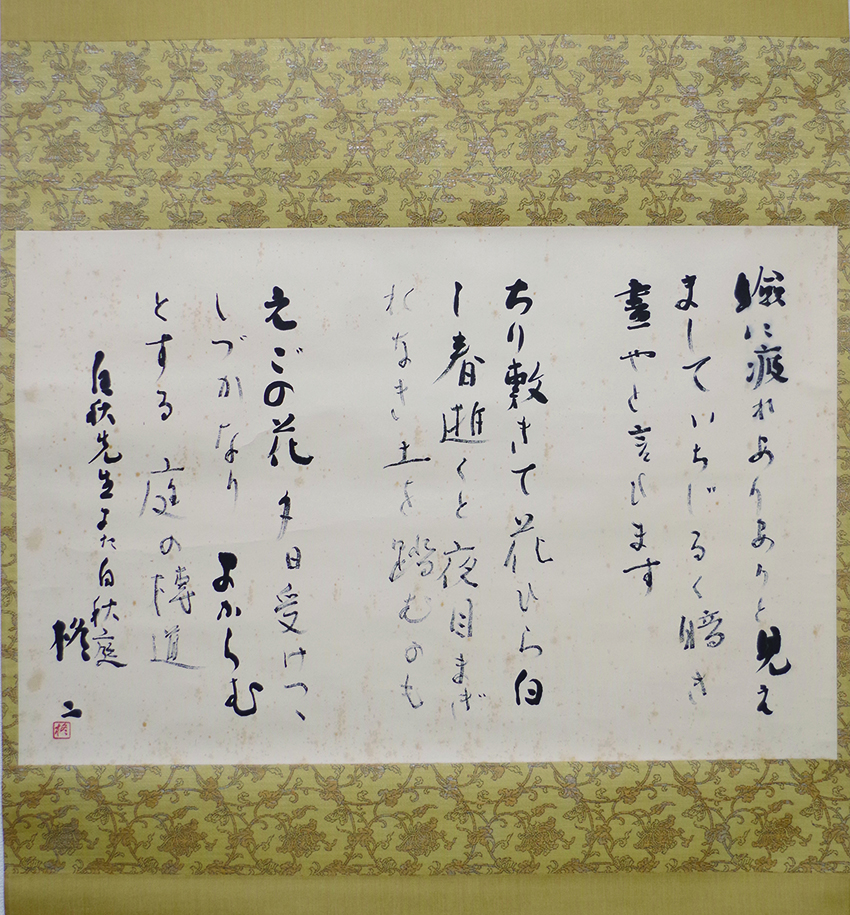 瞼に疲れありありと見え
ましていちじるく暗き
晝やと言ひます
ちり敷きて花ひら白
し春逝くと夜目まぎ
れなき土を踏むのも
えごの花夕日受けつゝ
しづかなりまからむ
とする庭の塼道
白秋先生また白秋庭
柊二
柊